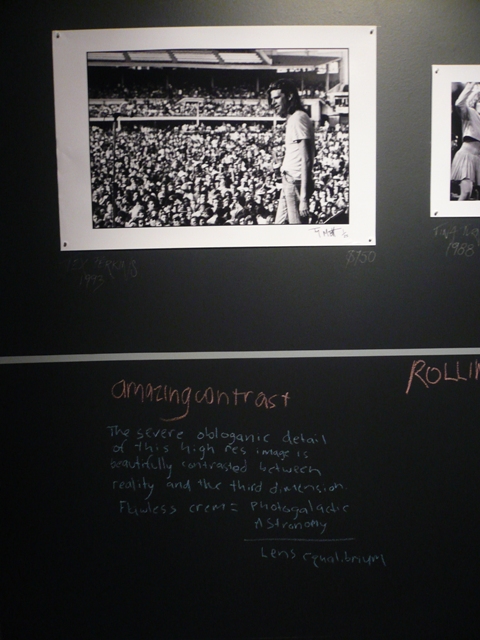 1993
$750
1988
amazing contrast
ROLLIN
The severe obloganic detail
of this high res image is
beautifully contrasted between
reality and the third dimension.
Flawless crem = Photogalactic
Astronomy
Lens equilibrium